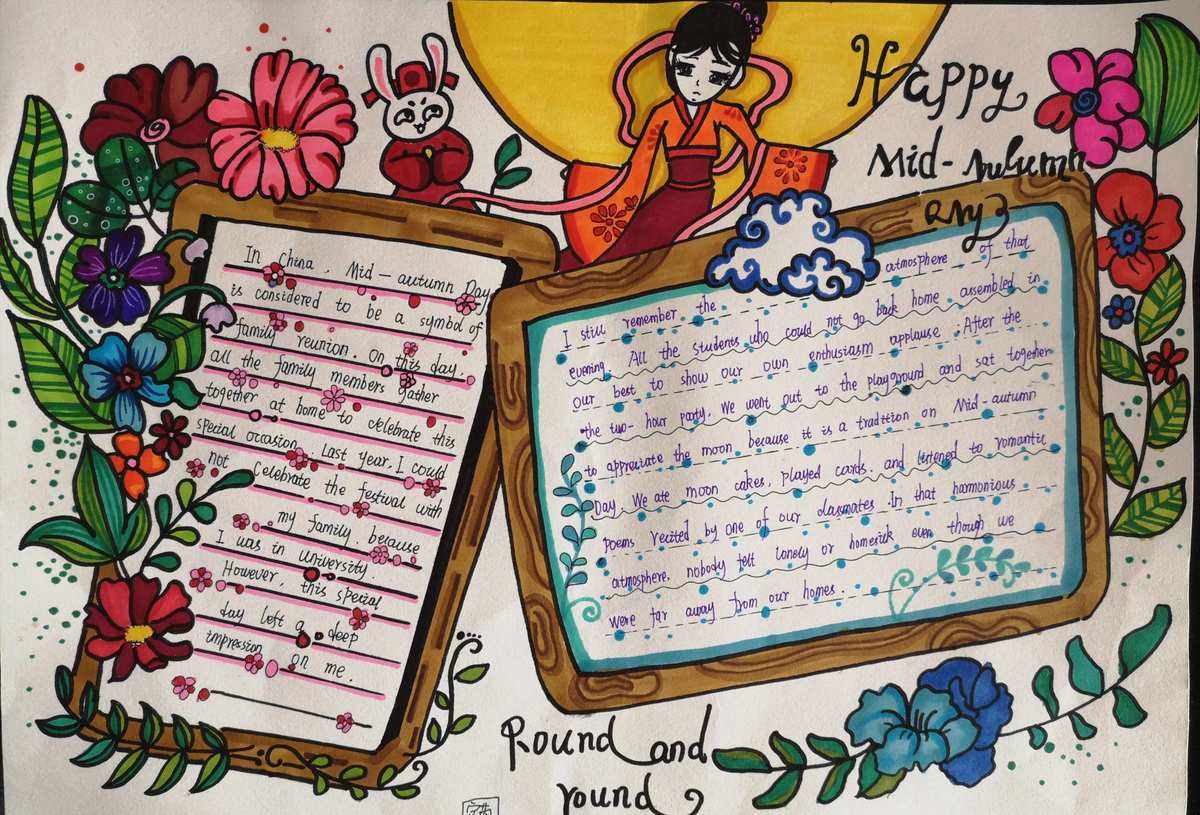 Happy
Mid-Autumn
In China, Mid-autumn Day
is considered to be a symbol of
family reunion. On this day.
all the family members gather
together at home to celebrate this
special occasion. Last year, I could
not celebrate the festival with
my family. because
I was in university.
However, this special
day left a deep
impression on me.
I still remember the atmosphere of that
evening. All the students who could not go back home assembled in
our best to show our own enthusiasm applause. After the
the two-hour party. We went out to the playground and sat together
to appreciate the moon because it is a tradition on Mid-autumn
Day. We ate moon cakes. played cards. and listened to romantic
poems recited by one of our classmates. In that harmonious
atmosphere. nobody felt lonely or homesick even though we
were far away from our homes.
Round and
round